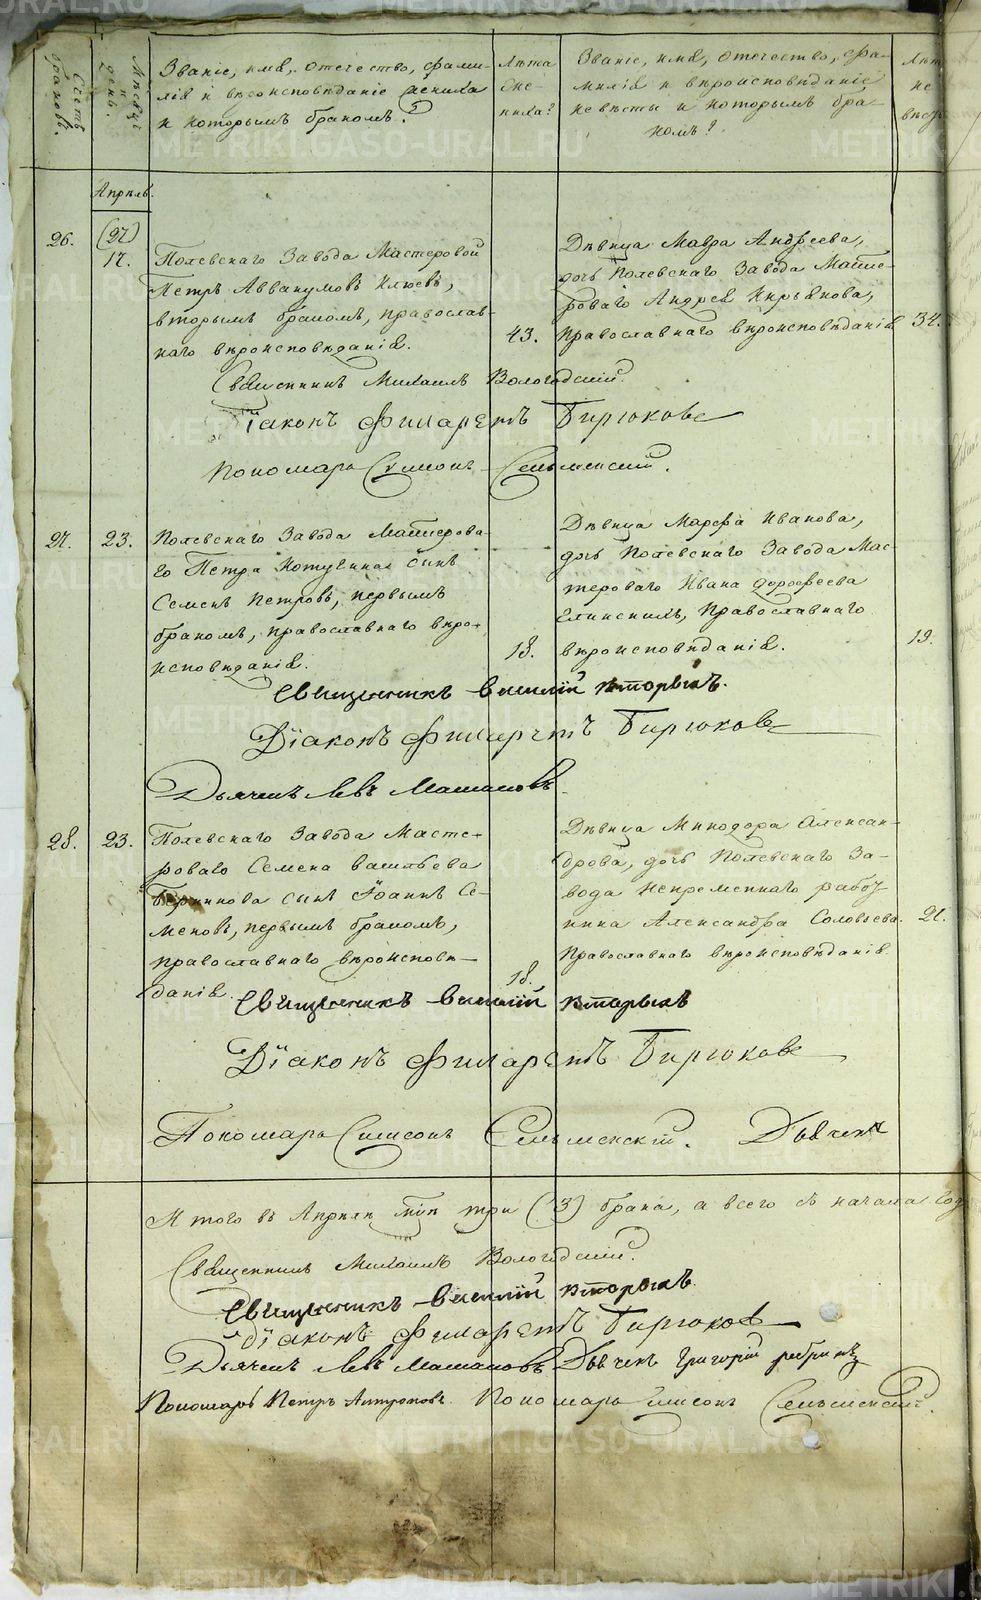 Счетъ браковъ.
Мѣсяцъ и день.
Званіе, имя, отечество, фами-
лія и вѣроисповѣданіе жениха
и которымъ бракомъ?
Лѣта
же-
ниха?
Званіе, имя, отечество, фа-
милія и вѣроисповѣданіе
невѣсты и которымъ бра-
комъ?
Лѣт
не
вѣст
Апрѣль.
26.
(27)
17.
Полевскаго Завода Мастеровой
Петръ Аввакумовъ Клюевъ,
вторымъ бракомъ, православ-
наго вѣроисповѣданія.
43.
Дѣвица Мавра Андреева,
дочь Полевскаго Завода Масте-
роваго Андрея Кирьякова,
православнаго вѣроисповѣданія
34.
Священникъ Михаилъ Вологодскій.
Діаконъ Филаретъ Бирюковъ
Пономарь Симеонъ
27.
23.
Полевскаго Завода Мастерова-
го Петра сынъ
Семенъ Петровъ, первымъ
бракомъ, православнаго вѣро-
исповѣданія.
18.
Дѣвица Марфа Иванова,
дочь Полевскаго Завода Мас-
тероваго Ивана Дорофеева
православнаго
вѣроисповѣданія.
19.
Священникъ Василій
Діаконъ Филаретъ Бирюковъ
Дьячекъ Левъ
28.
23.
Полевскаго Завода Масте-
роваго Семена Васильева
сынъ Іоаннъ Се-
меновъ, первымъ бракомъ,
православнаго вѣроисповѣ-
данія.
18.
Дѣвица Минодора Алексан-
дрова, дочь Полевскаго За-
вода Непремѣннаго работ-
ника Александра Соловьева.
Православнаго вѣроисповѣданія.
21.
Священникъ Василій
Діаконъ Филаретъ Бирюковъ
Пономарь Симеонъ
Дьячекъ
Итого въ Апрѣлѣ три (3) брака, а всего съ начала год
Священникъ Михаилъ Вологодскій.
Священникъ Василій
Діаконъ Филаретъ Бирюковъ
Дьячекъ Левъ
Дьячекъ Григорій
Пономарь Петръ Антроповъ.
Пономарь Симеонъ
METRIKI.GASO-URAL.RU